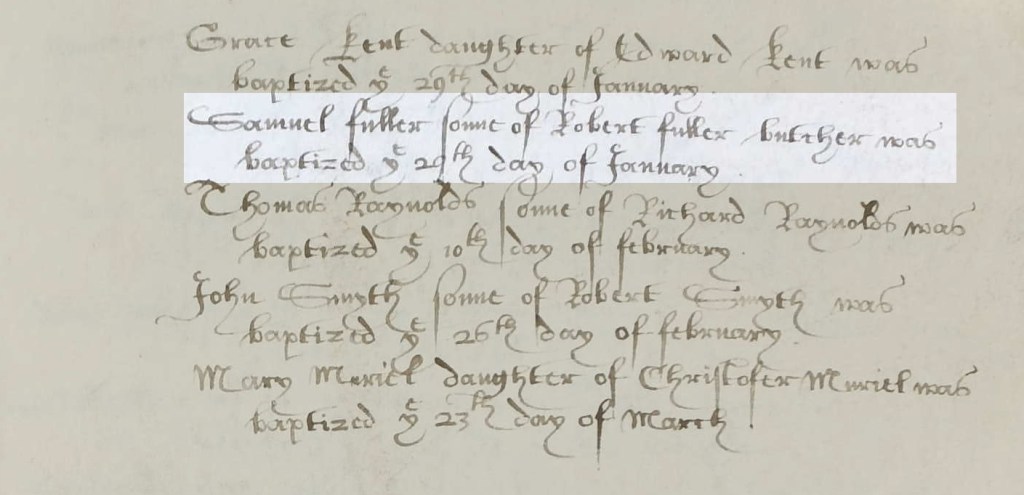 Grace Kent daughter of Edward Kent was
baptized yᵉ 29th day of January.
Samuel fuller sonne of Robert fuller butcher was
baptized yᵉ 29th day of January.
Thomas Raynolds sonne of Richard Raynolds was
baptized yᵉ 10th day of february.
John Smyth sonne of Robert Smyth was
baptized yᵉ 26th day of february.
Mary Muriel daughter of Christofer Muriel was
baptized yᵉ 23th day of March.